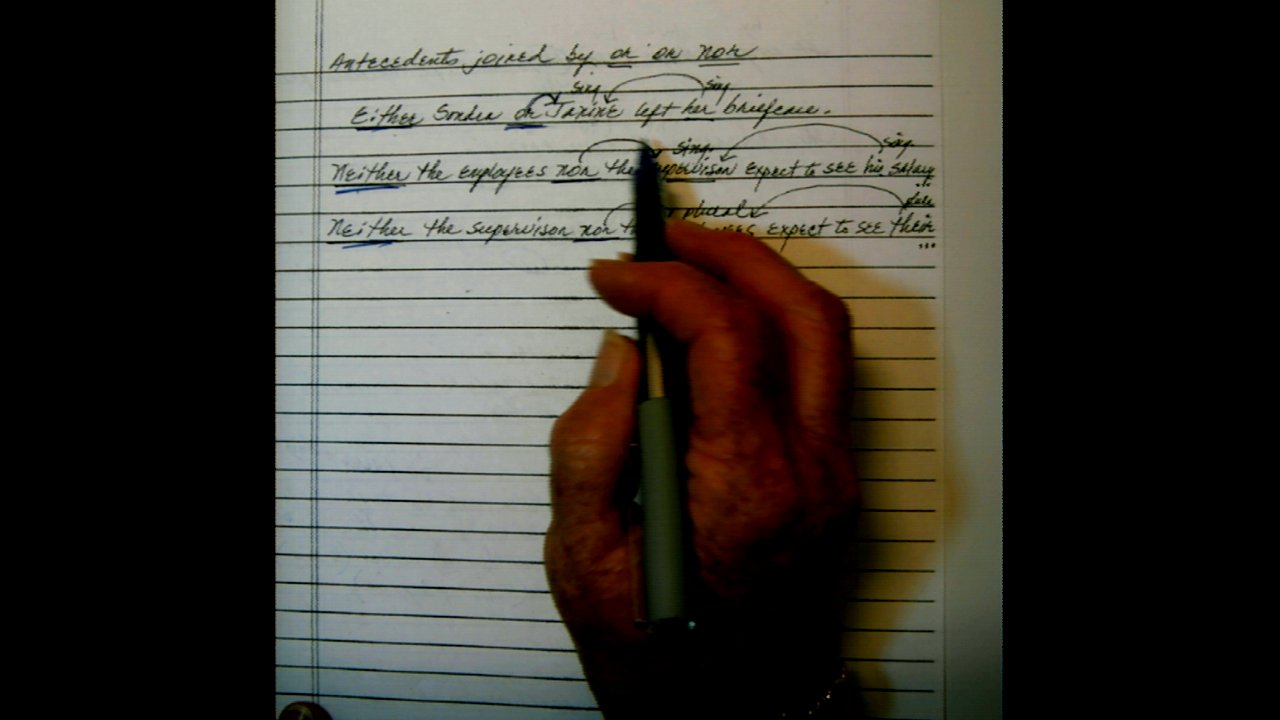 Antecedents joined by or or nor
sing sing
Either Sondra or Janine left her briefcase.
sing. sing.
Neither the employees nor the supervisor expect to see his salary
plural
Neither the supervisor nor expect to see their
...